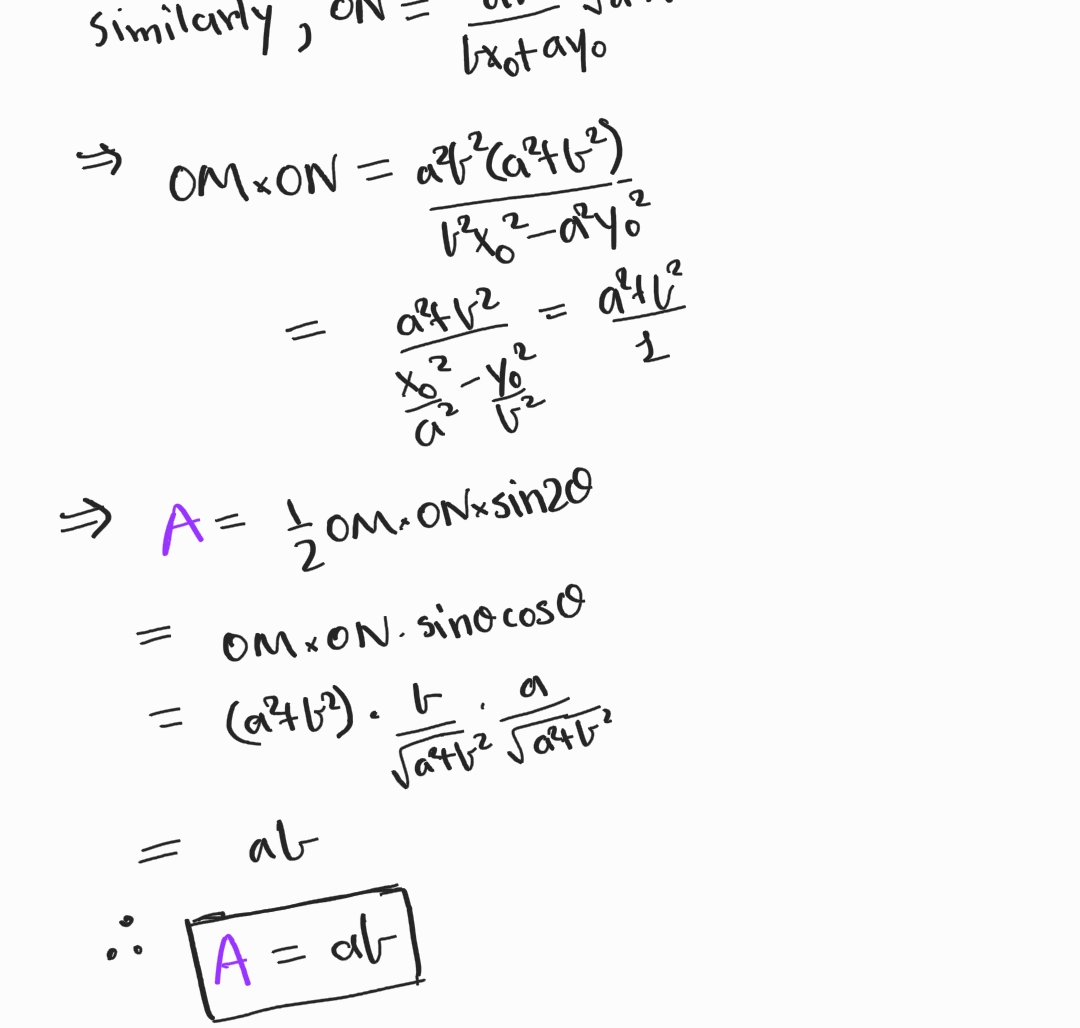 similarly, ON = / bx₀+ay₀
⇒ OM×ON = a²b²(a²+b²) / b²x₀²−a²y₀²
= a²+b² / x₀²/a² − y₀²/b² = a²+b² / 1
⇒ A = 1/2 OM×ON×sin2θ
= OM×ON·sinθcosθ
= (a²+b²)·b/√a²+b²·a/√a²+b²
= ab
∴ A = ab